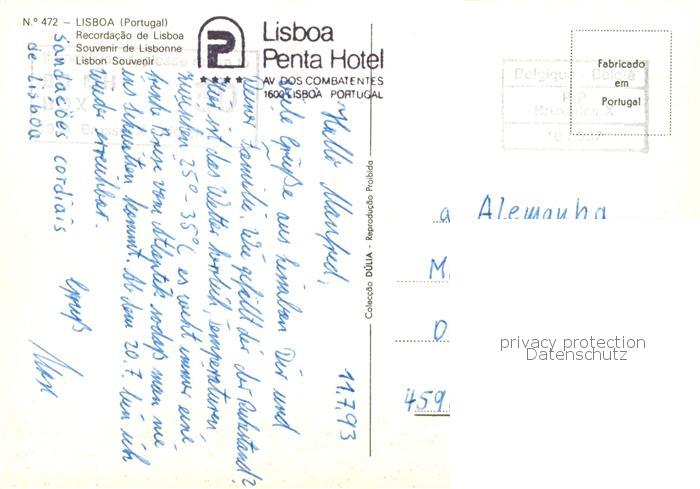 N.º 472 — LISBOA (Portugal)
Recordação de Lisboa
Souvenir de Lisbonne
Lisbon Souvenir
P
★★★★
Lisboa
Penta Hotel
AV DOS COMBATENTES
1600 LISBOA PORTUGAL
Fabricado
em
Portugal
Belgique - België
P.P.
Bruxelles X
Colecção DÚLIA - Reprodução Proibida
11.7.93
Hallo Manfred,
viele Grüße aus Lissabon Dir und
Deiner Familie. Wie gefällt dir der Ruhestand?
Hier ist das Wetter herrlich, Temperaturen
zwischen 25° - 35°C, es weht immer eine
Brise vom Atlantik sodaß man nie
ins Schwitzen kommt. Ab dem 20.7. bin ich
wieder erreichbar.
Saudações cordiais
de Lisboa
Gruß
a Alemanha
M
D
459
privacy protection
Datenschutz